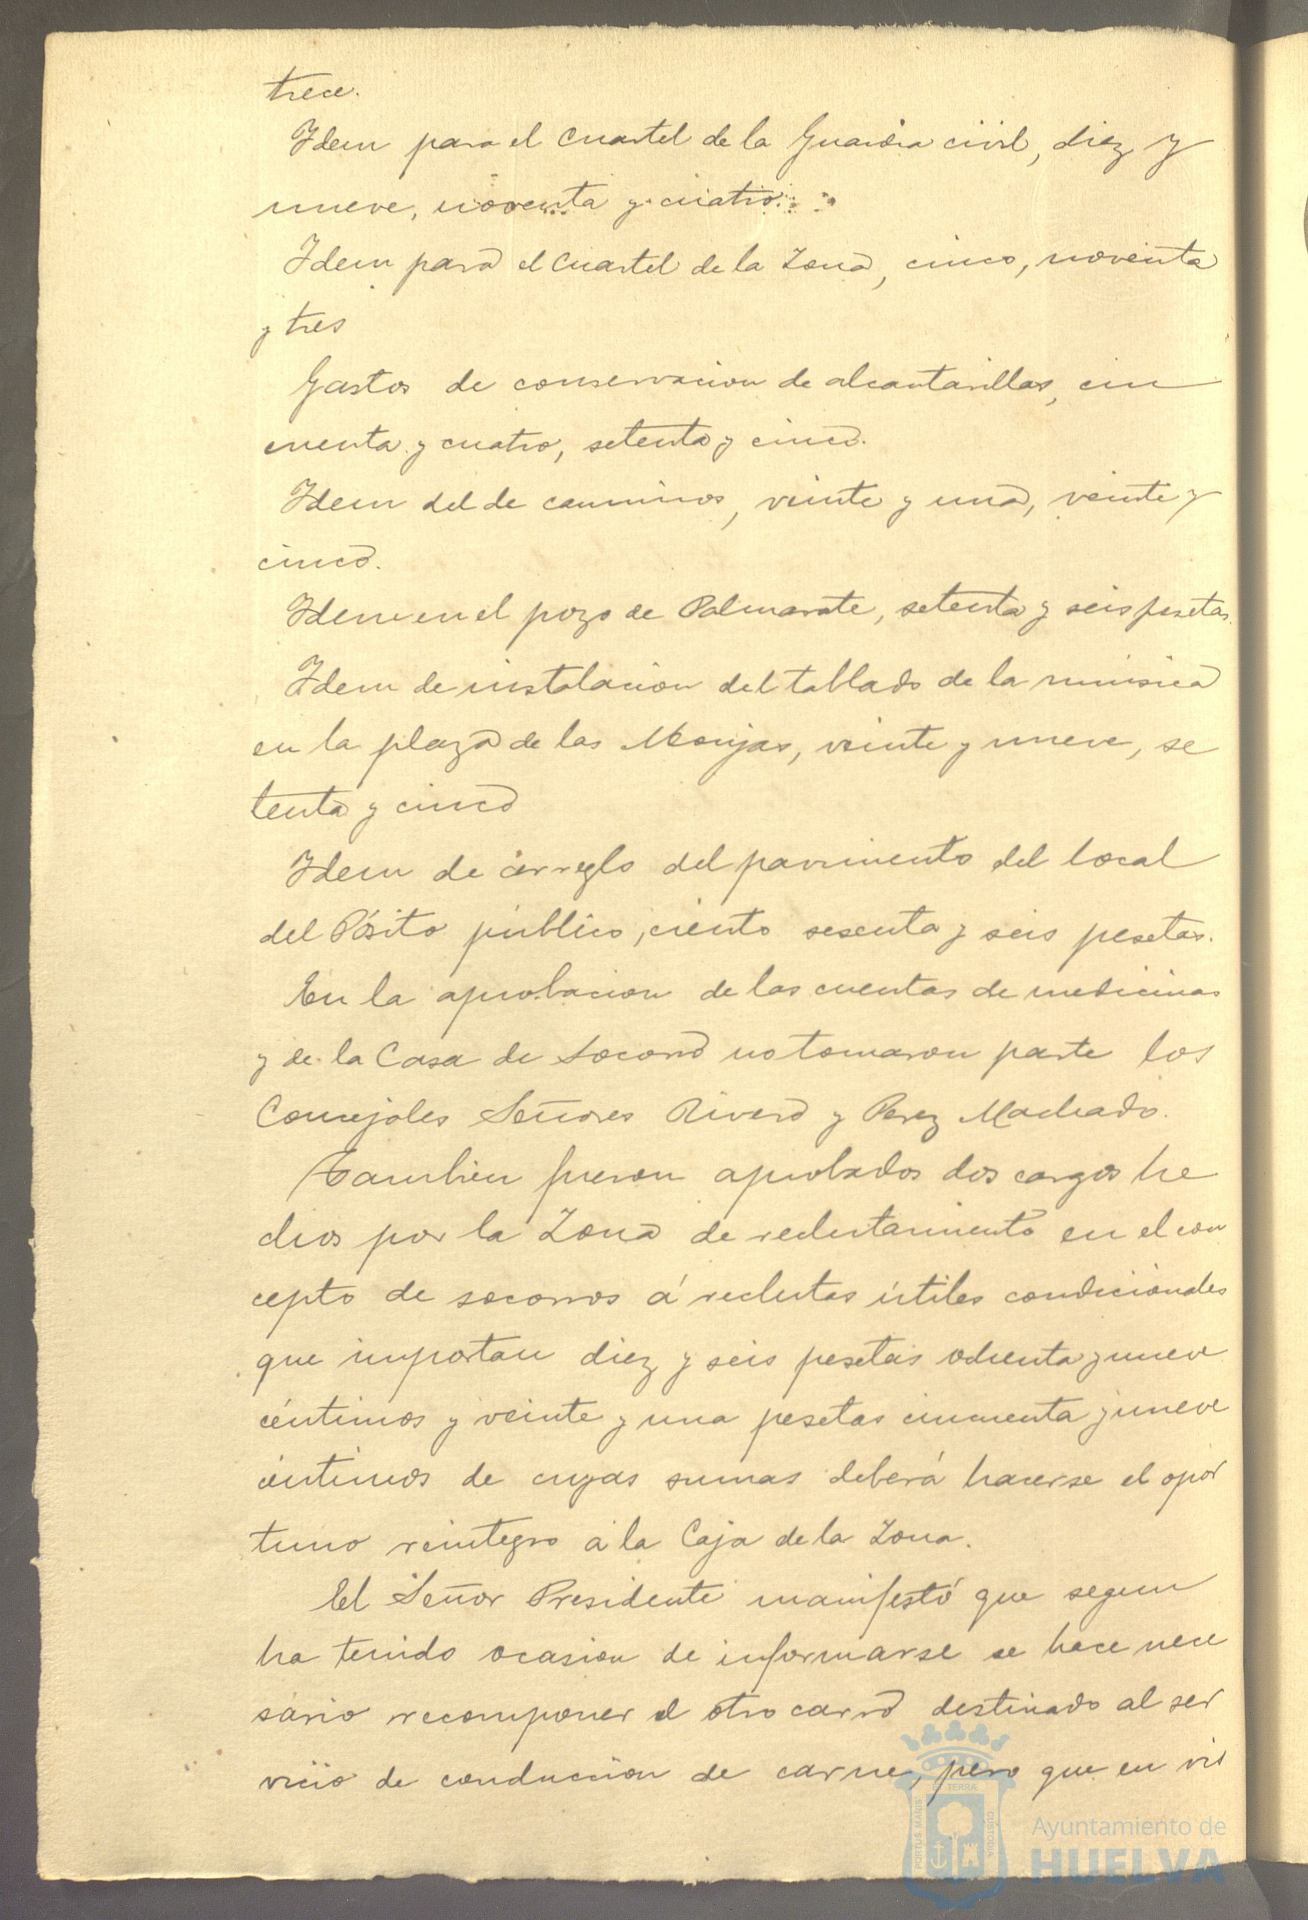 trece.
Idem para el Cuartel de la Guardia civil, diez y
nueve, noventa y cuatro.
Idem para el Cuartel de la Zona, cinco, noventa
y tres
Gastos de conservacion de alcantarillas, cin
cuenta y cuatro, setenta y cinco.
Idem del de caminos, veinte y una, veinte y
cinco.
Idem en el pozo de Palmarate, setenta y seis pesetas.
Idem de instalacion del tablado de la música
en la plaza de las Monjas, veinte y nueve, se
tenta y cinco
Idem de arreglo del pavimento del local
del Pósito público, ciento sesenta y seis pesetas.
En la aprobacion de las cuentas de medicinas
y de la Casa de Socorro no tomaron parte los
Concejales Señores Rivero y Perez Machado.
Tambien fueron aprobados dos cargos he
chos por la Zona de reclutamiento en el con
cepto de socorros á reclutas útiles condicionales
que importan diez y seis pesetas ochenta y nueve
céntimos y veinte y una pesetas cincuenta y nueve
céntimos de cuyas sumas deberá hacerse el opor
tuno reintegro á la Caja de la Zona.
El Señor Presidente manifestó que segun
ha tenido ocasion de informarse se hace nece
sario recomponer el otro carro destinado al ser
vicio de conduccion de carne, pero que en vis
PORTUS MARIS ET TERRÆ CUSTODIA
Ayuntamiento de
HUELVA